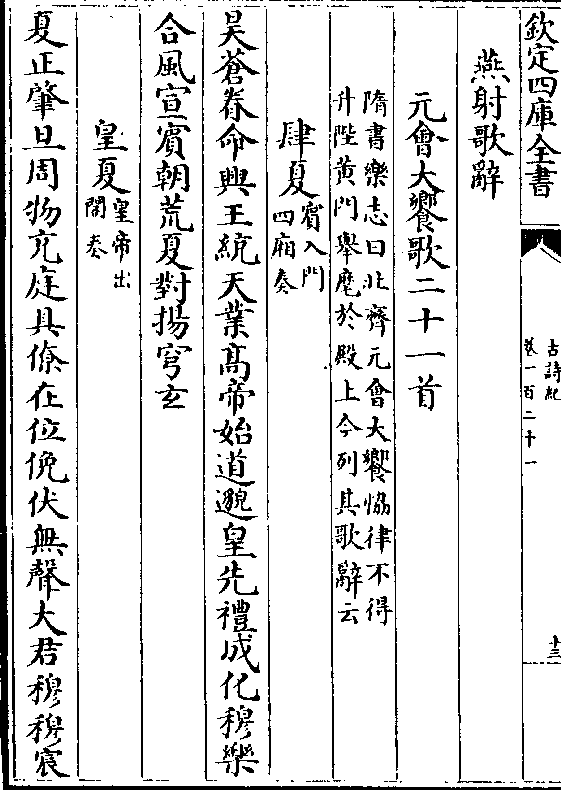 欽定四庫全書
古詩紀
卷一百二十一
十三
燕射歌辭
元會大饗歌二十一首
隋書樂志曰北齊元會大饗協律不得
升陛黄門舉麾於殿上今列其歌辭云
肆夏
賓入門
四廂奏
昊蒼眷命興王統天業髙帝始道邈皇先禮成化穆樂
合風宣賓朝荒夏對揚穹玄
皇夏
皇帝出
閤奏
夏正肇旦周物充庭具僚在位俛伏無聲大君穆穆宸